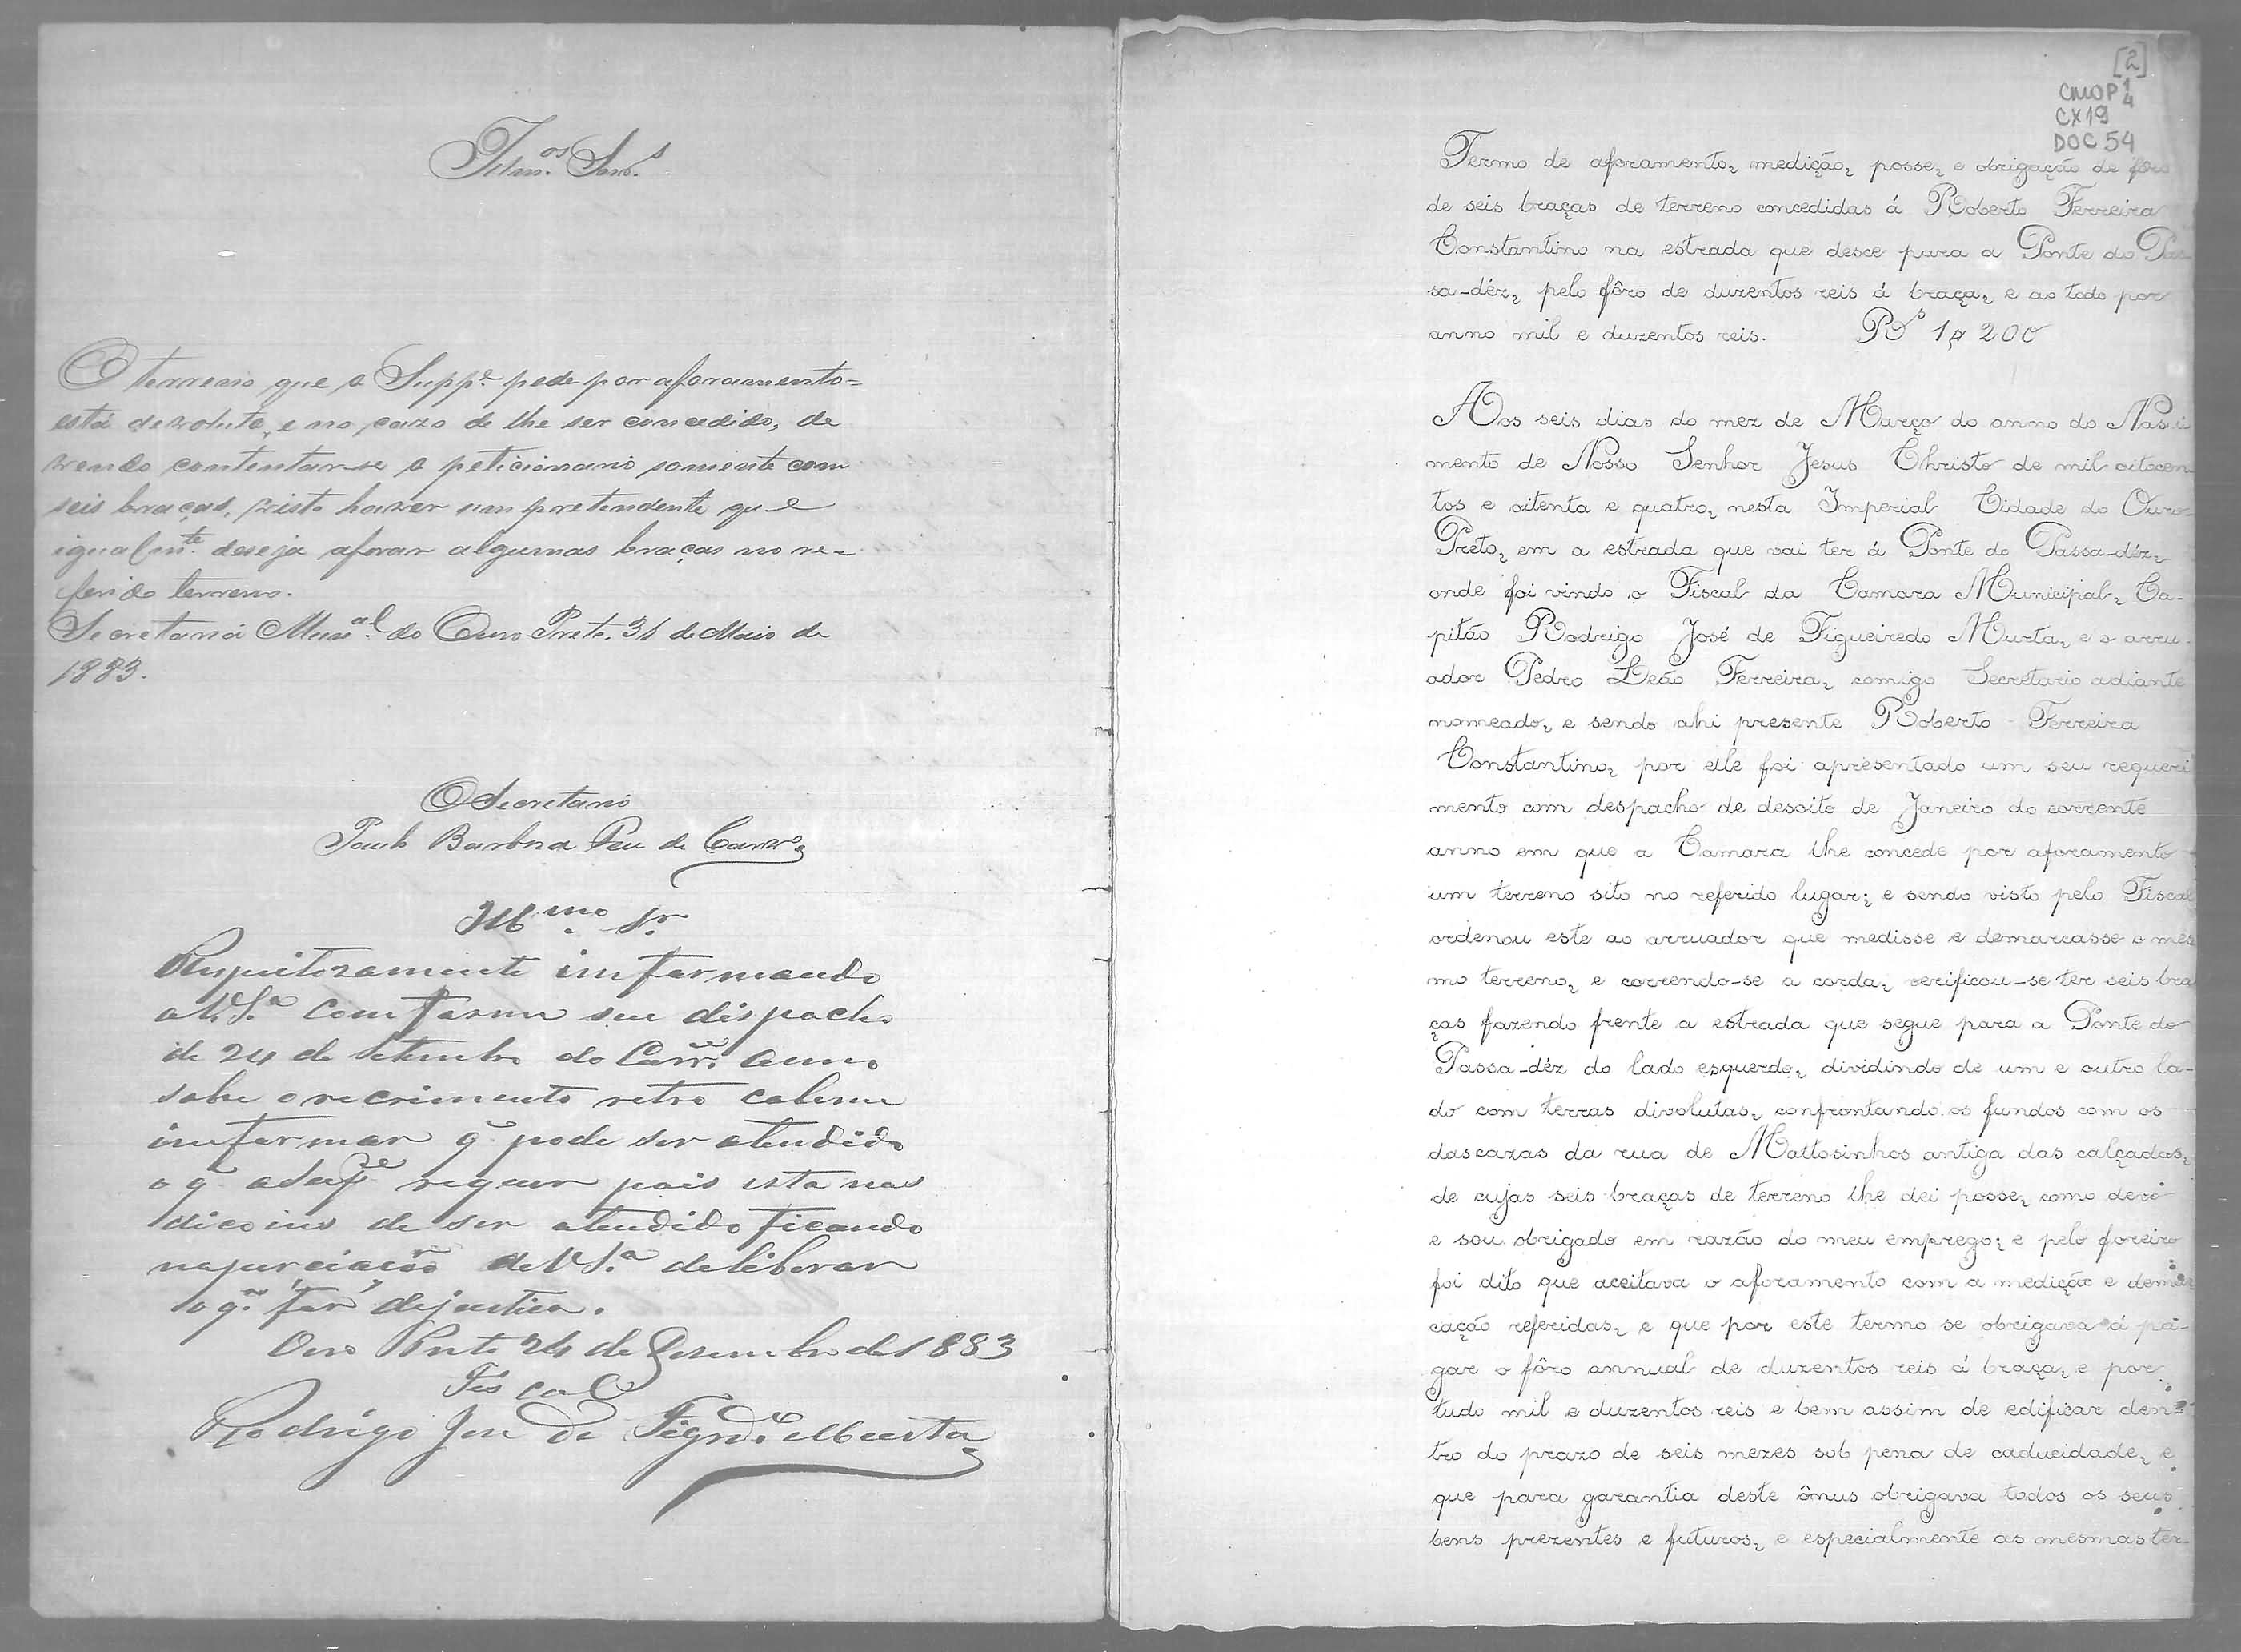 Illm.os Snrs.
O terreno que o Supp.e pede por aforamento=
está devoluto, e no cazo de lhe ser concedido, de
vendo contentar-se o peticionario somente com
seis braças, visto haver um pretendente que
igualm.te deseja aforar algumas braças no re-
ferido terreno.
Secretaria Mun.al do Ouro Preto, 31 de Maio de
1883.
O Secretario
Paulo Barboza de
Ill.mo Sr.
Respeitozamente imformando
a V.S.a comforme seu dispacho
de 24 de Setembro do Corr.e anno
sobre o recrimento retro cabeme
imformar q̃ pode ser atendido
o q̃ requer pois esta nas
dicoins de ser atendido ficando
de V.S.a deliberar
o q̃ for dejustica.
Oro Preto 24 de Desembro de 1883
Fiscal
Rodrigo Jose de Figrd.o Murta
[2]
CMOP 1/4
CX19
DOC 54
Termo de aforamento, medição, posse, e obrigação de fôro
de seis braças de terreno concedidas á Roberto Ferreira
Constantino na estrada que desce para a Ponte do Pas-
sa-déz, pelo fôro de duzentos reis á braça, e ao todo por
anno mil e duzentos reis. Rs 1$200
Aos seis dias do mez de Março do anno do Nasci
mento de Nosso Senhor Jesus Christo de mil oitocen
tos e oitenta e quatro, nesta Imperial Cidade do Ouro-
Preto, em a estrada que vai ter á Ponte do Passa-déz,
onde foi vindo o Fiscal da Camara Municipal, Ca-
pitão Rodrigo José de Figueiredo Murta, e o arru-
ador Pedro Leão Ferreira, comigo Secretario adiante
nomeado, e sendo ahi presente Roberto Ferreira
Constantino, por elle foi apresentado um seu requeri
mento com despacho de desoito de Janeiro do corrente
anno em que a Camara lhe concede por aforamento
um terreno sito no referido lugar; e sendo visto pelo Fiscal
ordenou este ao arruador que medisse e demarcasse o mes
mo terreno, e correndo-se a corda, verificou-se ter seis bra
ças fazendo frente a estrada que segue para a Ponte do
Passa-déz do lado esquerdo, dividindo de um e outro la-
do com terras divolutas, confrontando os fundos com os
das cazas da rua de Mattosinhos antiga das calçadas,
de cujas seis braças de terreno lhe dei posse, como devo
e sou obrigado em razão do meu emprego; e pelo foreiro
foi dito que aceitava o aforamento com a medição e demar
cação referidas, e que por este termo se obrigava á pa-
gar o fôro annual de duzentos reis á braça, e por
tudo mil e duzentos reis e bem assim de edificar den-
tro do prazo de seis mezes sob pena de caducidade, e
que para garantia deste ônus obrigava todos os seus
bens prezentes e futuros, e especialmente as mesmas ter-